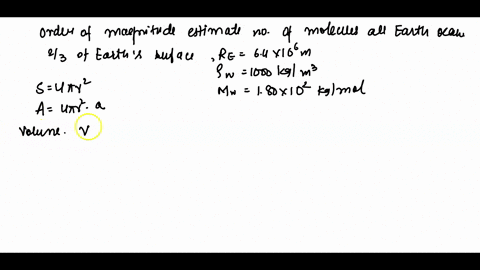 Order of magnitude estimate no. of molecules all Earth ocean
2/3 of Earth's surface , RE = 6.4 x 10^6 m
ρw = 1000 kg/m^3
Mw = 1.80 x 10^2 kg/mol
S = 4πr^2
A = 4πr^2 . a
Volume. V